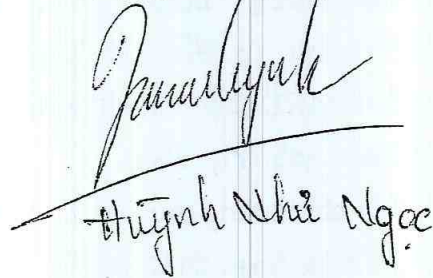 Huỳnh Như Ngọc